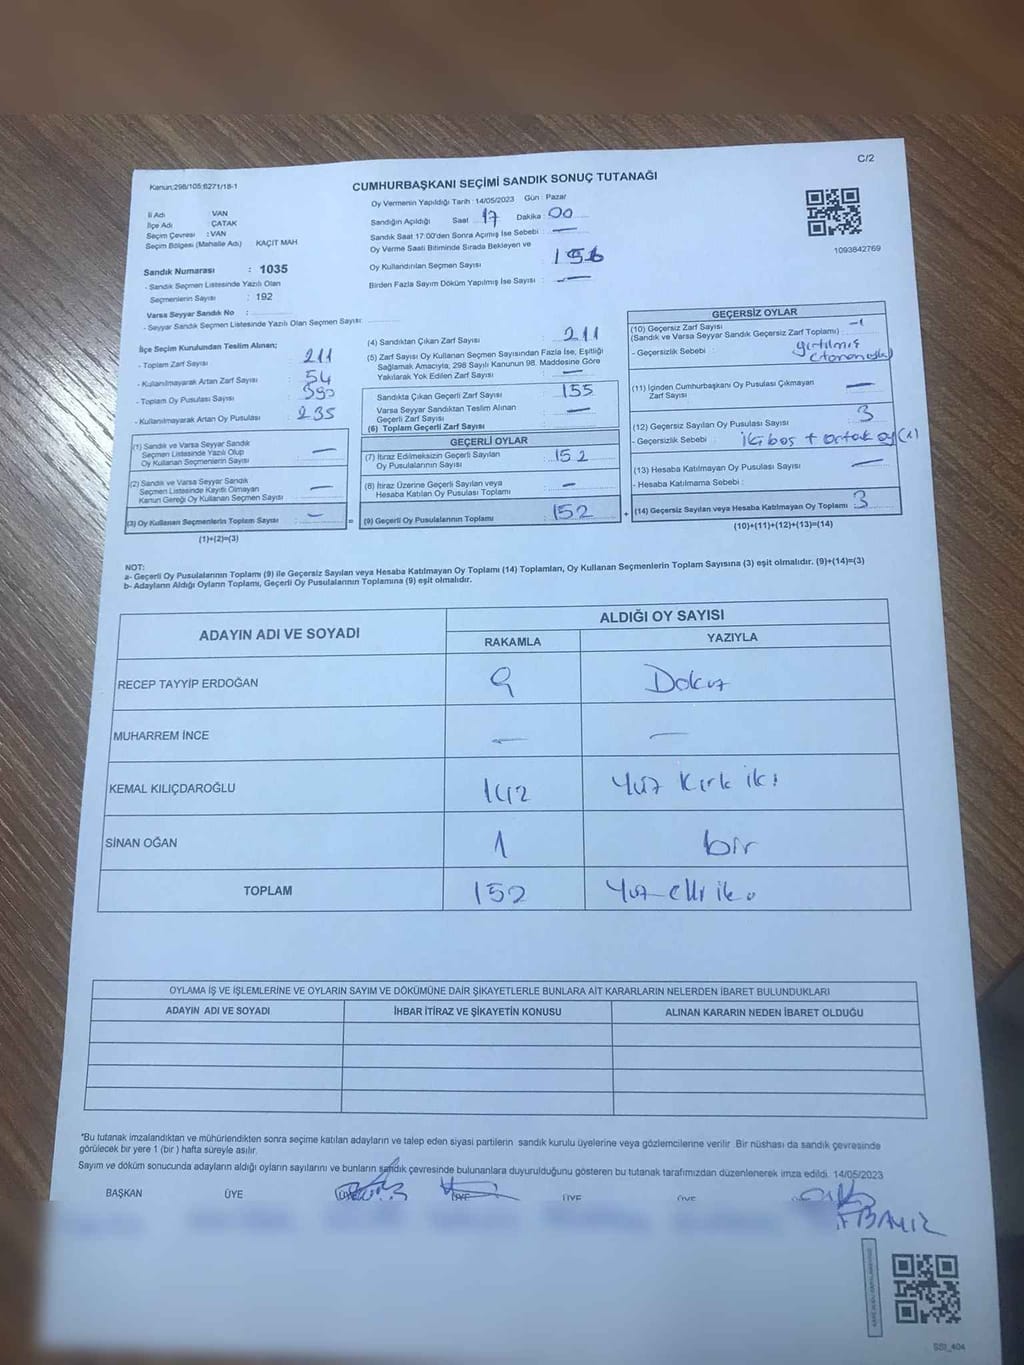 C/2
Kanun;298/105;6271/18-1
CUMHURBAŞKANI SEÇİMİ SANDIK SONUÇ TUTANAĞI
Oy Vermenin Yapıldığı Tarih : 14/05/2023 Gün : Pazar
İl Adı VAN
İlçe Adı : ÇATAK
Seçim Çevresi : VAN
Seçim Bölgesi (Mahalle Adı) KAÇIT MAH
Sandığın Açıldığı Saat 17 Dakika : 00
Sandık Saat 17:00'den Sonra Açımış İse Sebebi : —
Oy Verme Saati Bitiminde Sırada Bekleyen ve
Oy Kullandırılan Seçmen Sayısı 156
Birden Fazla Sayım Döküm Yapılmış İse Sayısı : —
1093842769
Sandık Numarası : 1035
- Sandık Seçmen Listesinde Yazılı Olan
Seçmenlerin Sayısı : 192
Varsa Seyyar Sandık No :
- Seyyar Sandık Seçmen Listesinde Yazılı Olan Seçmen Sayısı:
İlçe Seçim Kurulundan Teslim Alınan;
- Toplam Zarf Sayısı : 211
- Kullanılmayarak Artan Zarf Sayısı : 54
- Toplam Oy Pusulası Sayısı :
- Kullanılmayarak Artan Oy Pusulası : 235
(1) Sandık ve Varsa Seyyar Sandık
Seçmen Listesinde Yazılı Olup
Oy Kullanan Seçmenlerin Sayısı : —
(2) Sandık ve Varsa Seyyar Sandık
Seçmen Listesinde Kayıtlı Olmayan
Kanun Gereği Oy Kullanan Seçmen Sayısı : —
(3) Oy Kullanan Seçmenlerin Toplam Sayısı : —
(1)+(2)=(3)
(4) Sandıktan Çıkan Zarf Sayısı : 211
(5) Zarf Sayısı Oy Kullanan Seçmen Sayısından Fazla İse, Eşitliği
Sağlamak Amacıyla, 298 Sayılı Kanunun 98. Maddesine Göre
Yakılarak Yok Edilen Zarf Sayısı : —
Sandıkta Çıkan Geçerli Zarf Sayısı : 155
Varsa Seyyar Sandıktan Teslim Alınan
Geçerli Zarf Sayısı : —
(6) Toplam Geçerli Zarf Sayısı :
GEÇERLİ OYLAR
(7) İtiraz Edilmeksizin Geçerli Sayılan
Oy Pusulalarının Sayısı : 152
(8) İtiraz Üzerine Geçerli Sayılan veya
Hesaba Katılan Oy Pusulası Toplamı : —
= (9) Geçerli Oy Pusulalarının Toplamı : 152
GEÇERSİZ OYLAR
(10) Geçersiz Zarf Sayısı -1
(Sandık ve Varsa Seyyar Sandık Geçersiz Zarf Toplamı) :
- Geçersizlik Sebebi : yırtılmış
(11) İçinden Cumhurbaşkanı Oy Pusulası Çıkmayan
Zarf Sayısı : —
(12) Geçersiz Sayılan Oy Pusulası Sayısı : 3
- Geçersizlik Sebebi : iki boş + ortak oy (1)
(13) Hesaba Katılmayan Oy Pusulası Sayısı : —
- Hesaba Katılmama Sebebi :
+ (14) Geçersiz Sayılan veya Hesaba Katılmayan Oy Toplamı : 3
(10)+(11)+(12)+(13)=(14)
NOT:
a- Geçerli Oy Pusulalarının Toplamı (9) ile Geçersiz Sayılan veya Hesaba Katılmayan Oy Toplamı (14) Toplamları, Oy Kullanan Seçmenlerin Toplam Sayısına (3) eşit olmalıdır. (9)+(14)=(3)
b- Adayların Aldığı Oyların Toplamı, Geçerli Oy Pusulalarının Toplamına (9) eşit olmalıdır.
ADAYIN ADI VE SOYADI ALDIĞI OY SAYISI
RAKAMLA YAZIYLA
RECEP TAYYİP ERDOĞAN 9 Dokuz
MUHARREM İNCE — —
KEMAL KILIÇDAROĞLU 142 Yüz Kırk iki
SİNAN OĞAN 1 bir
TOPLAM 152 Yüz elli iki
OYLAMA İŞ VE İŞLEMLERİNE VE OYLARIN SAYIM VE DÖKÜMÜNE DAİR ŞİKAYETLERLE BUNLARA AİT KARARLARIN NELERDEN İBARET BULUNDUKLARI
ADAYIN ADI VE SOYADI İHBAR İTİRAZ VE ŞİKAYETİN KONUSU ALINAN KARARIN NEDEN İBARET OLDUĞU
"Bu tutanak imzalandıktan ve mühürlendikten sonra seçime katılan adayların ve talep eden siyasi partilerin sandık kurulu üyelerine veya gözlemcilerine verilir. Bir nüshası da sandık çevresinde
görülecek bir yere 1 (bir ) hafta süreyle asılır.
Sayım ve döküm sonucunda adayların aldığı oyların sayılarını ve bunların sandık çevresinde bulunanlara duyurulduğunu gösteren bu tutanak tarafımızdan düzenlenerek imza edildi. 14/05/2023
BAŞKAN ÜYE ÜYE ÜYE ÜYE
SSI_404